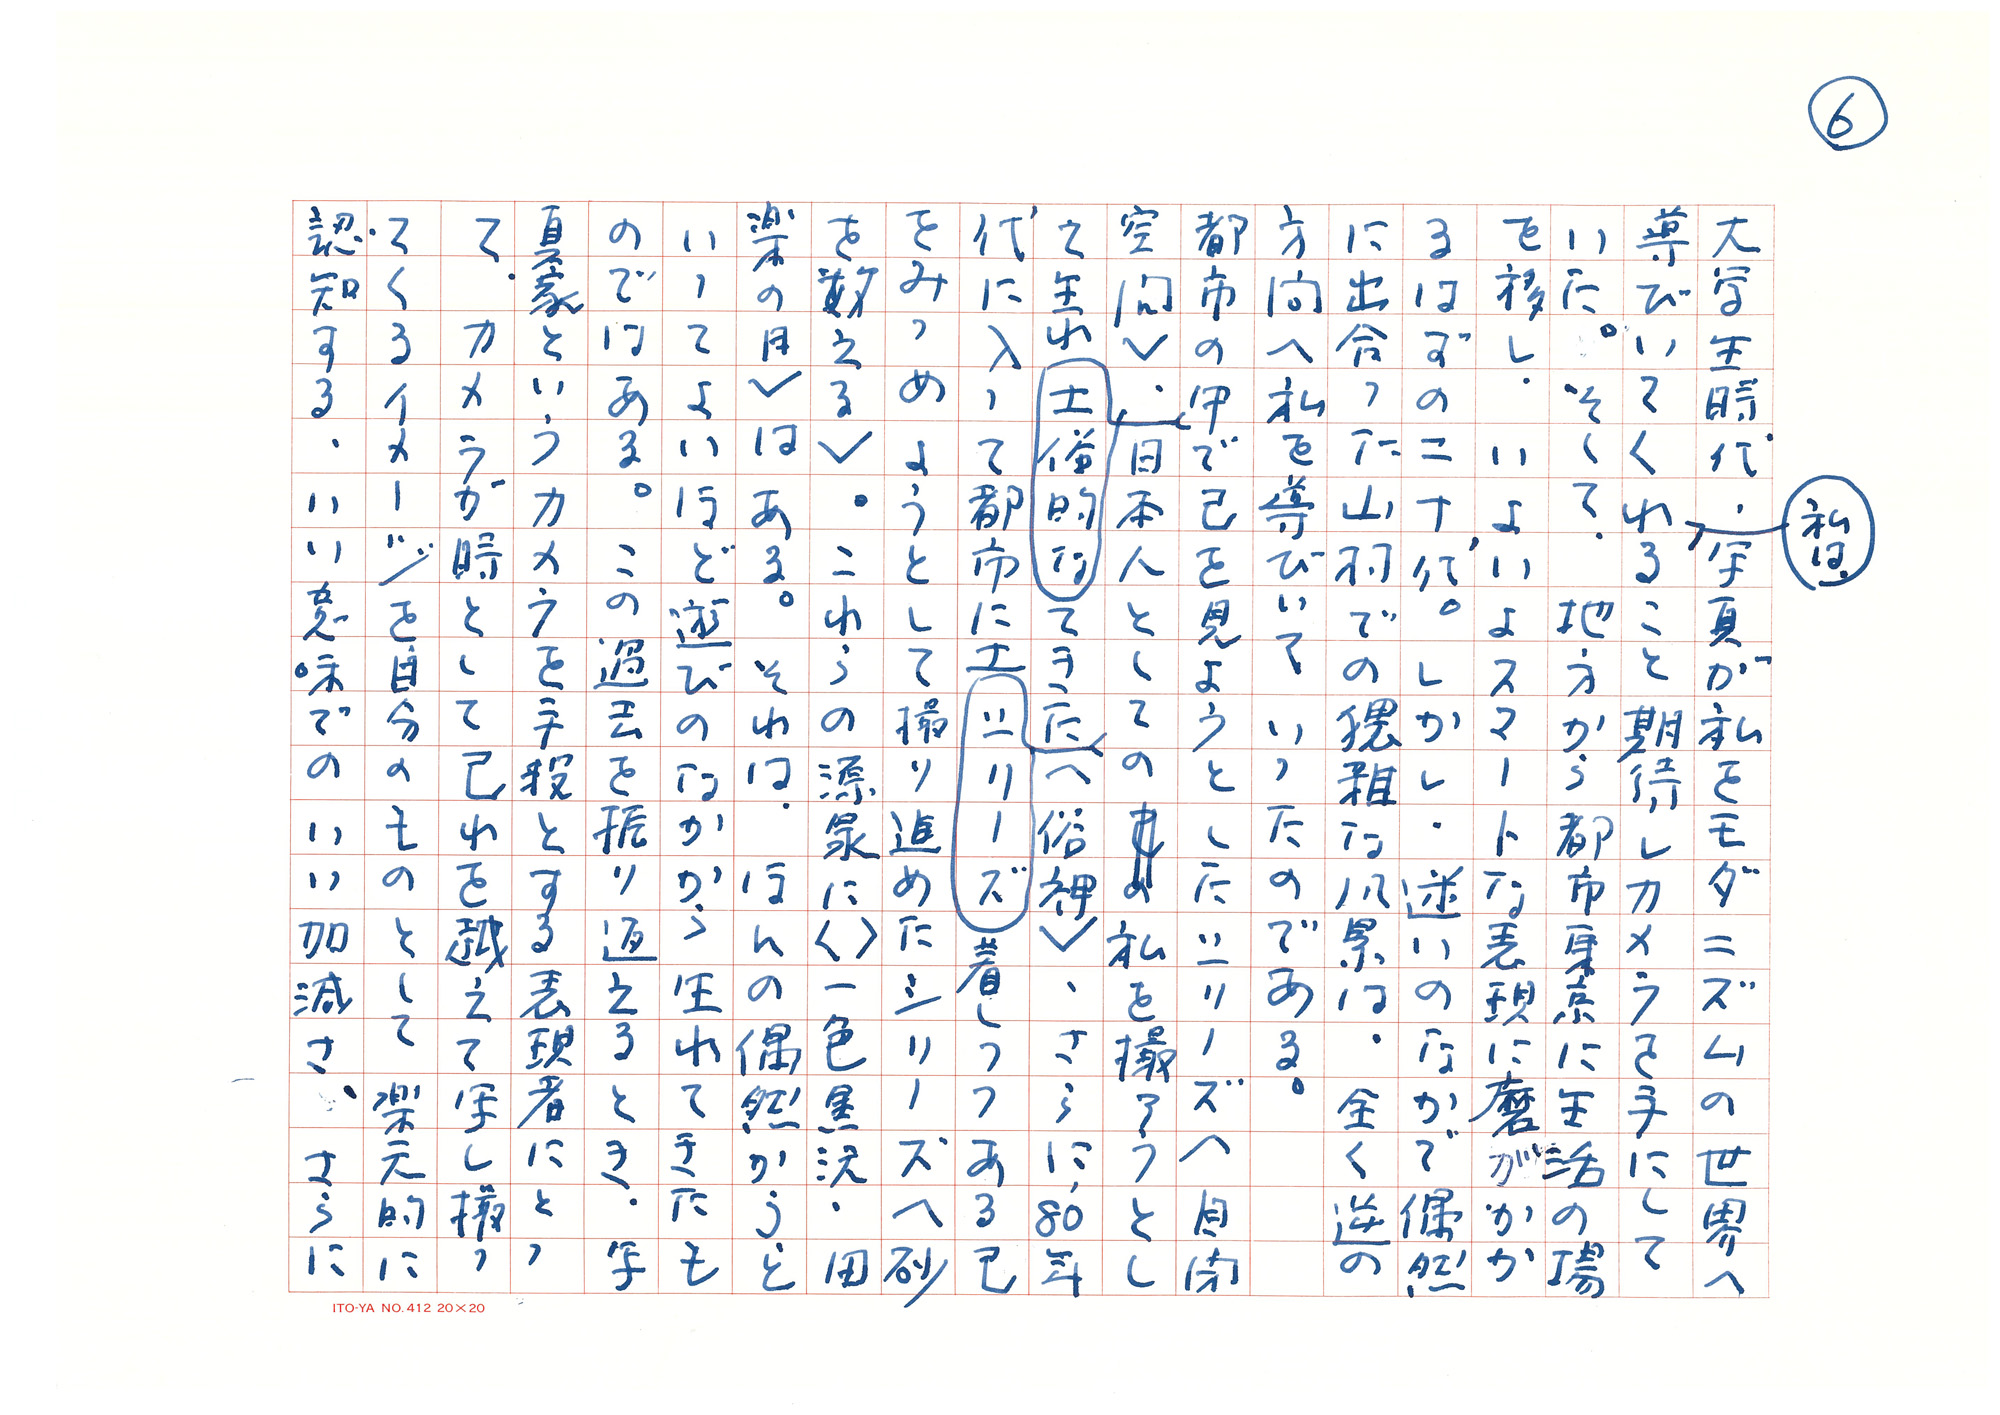 ⑥
大学生時代、写真が私をモダニズムの世界へ
私は、
導びいてくれること期待しカメラを手にして
いた。そして、地方から都市東京に生活の場
を移し、いよいよスマートな表現に磨がかか
るはずの二十代。しかし、迷いのなかで偶然
に出合った山村での猥雑な風景は、全く逆の
方向へ私を導びいていったのである。
都市の中で己を見ようとしたシリーズへ自閉
空間〉、日本人としての私を撮ろうとし
て生れ土俗的なてきたへ俗神〉、さらに、80年
代に入って都市に土シリーズ着しつつある己
をみつめようとして撮り進めたシリーズへ砂
を数える〉。これらの源泉に〈〉一色黒沢・田
楽の里〉はある。それは、ほんの偶然かうと
いってよいほど遊びのなかから生れてきたも
のではある。この過去を振り返えるとき、写
真家というカメラを手段とする表現者にとっ
て、カメラが時として己れを越えて写し撮っ
てくるイメージを自分のものとして楽元的に
認知する、いい意味でのいい加減さ、さらに
ITO-YA NO.412 20×20